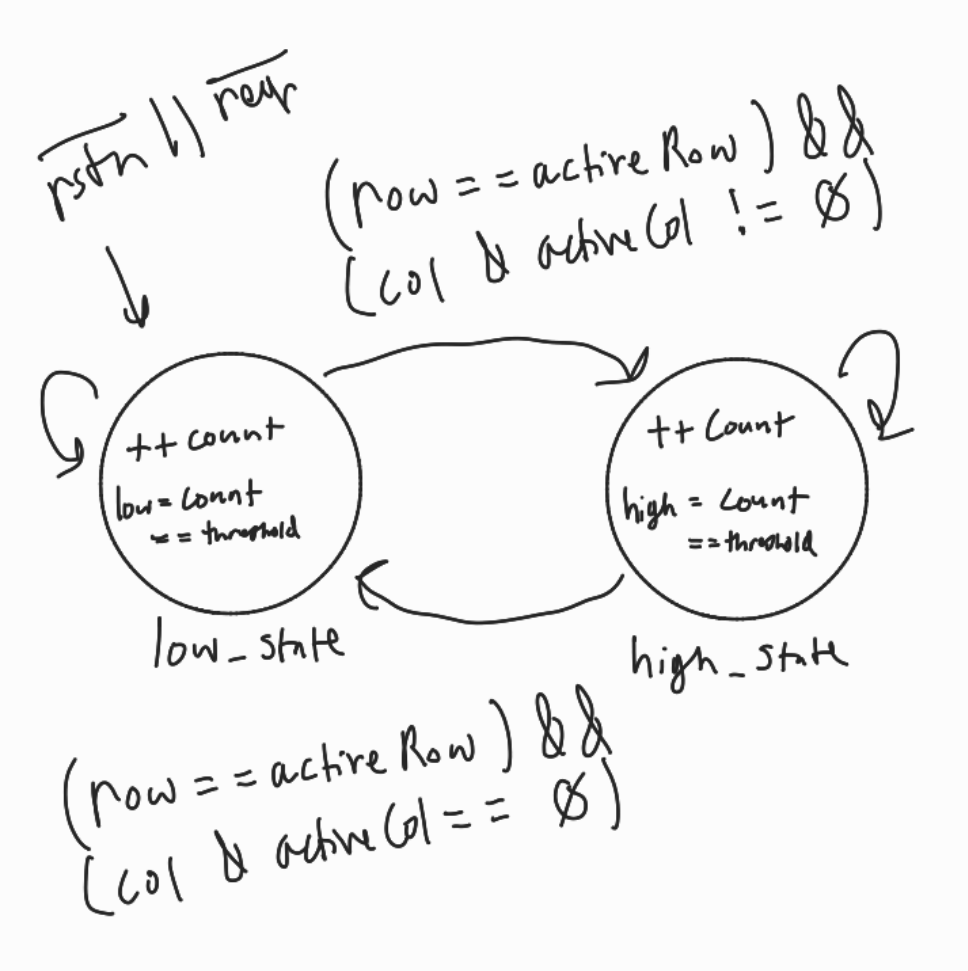 rstn || req
(row == active Row) &&
(col & active Col != 0)
++ count
low = count
== threshold
low_state
++ Count
high = count
== threshold
high_state
(row == active Row) &&
(col & active Col == 0)